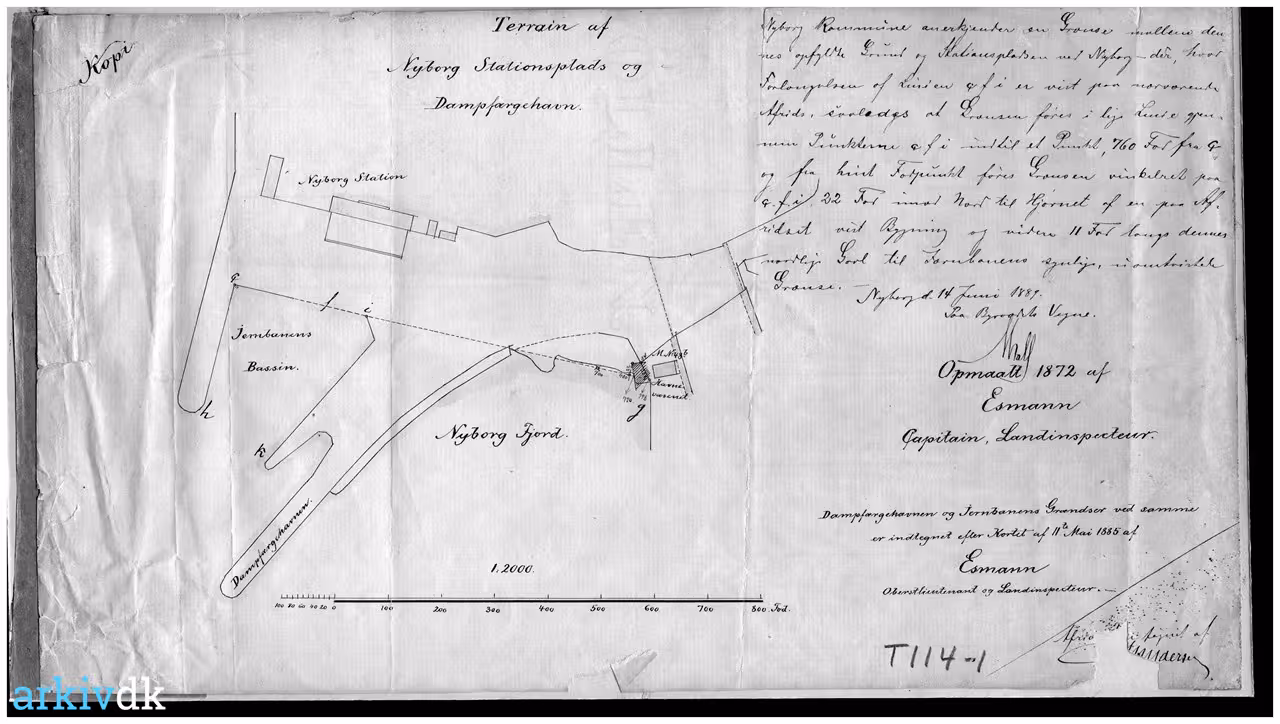 Kopi
Terrain af
Nyborg Stationsplads og
Dampfærgehavn.
Nyborg Kommune anerkjender en Grænse mellem den-
nes opfyldte Grund og Stationspladsen ved Nyborg – der, hvor
Forlængelsen af Linien q f i er vist paa nærværende
Afrids, saaledes at Grænsen føres i lige Linie gjen-
nem Punkterne q f i indtil et Punkt, 760 Fod fra q
og fra hint Fodpunkt føres Grænsen vinkelret paa
q. f. i. 22 Fod imod Nord til Hjørnet af en paa Af-
ridset vist Bygning og videre 11 Fod langs dennes
nordlige Gavl til Jernbanens synlige, uomtvistede
Grænse.
Nyborg d. 14 Juni 1889.
Paa Byraadets Vegne.
Opmaalt 1872 af
Esmann
Capitain, Landinspecteur.
Nyborg Station
q
f
i
Jernbanens
Bassin.
h
k
Havne
væsenet
g
Nyborg Fjord.
Dampfærgehavnen.
Dampfærgehavnen og Jernbanens Grændser ved samme
er indtegnet efter Kortet af 11te Mai 1885 af
Esmann
Oberstlieutenant og Landinspecteur.
1:2000.
100 80 60 40 20 0 100 200 300 400 500 600 700 800 Fod.
T114-1
arkivdk